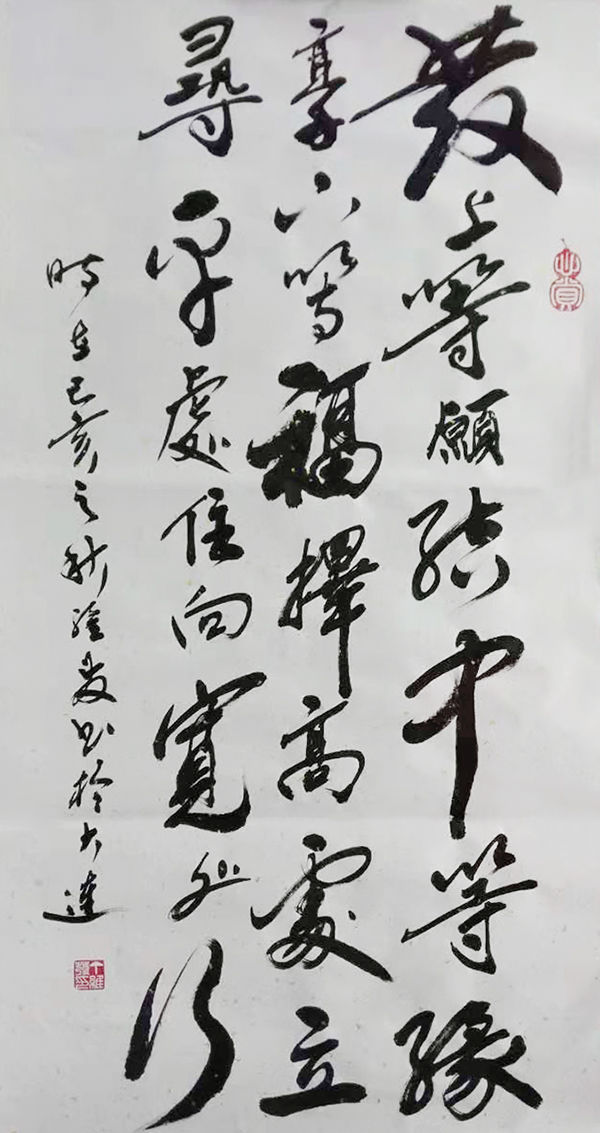 發上等願結中等緣
享下等福擇高處立
尋平處住向寬处行
時在己亥之秋 書於大連